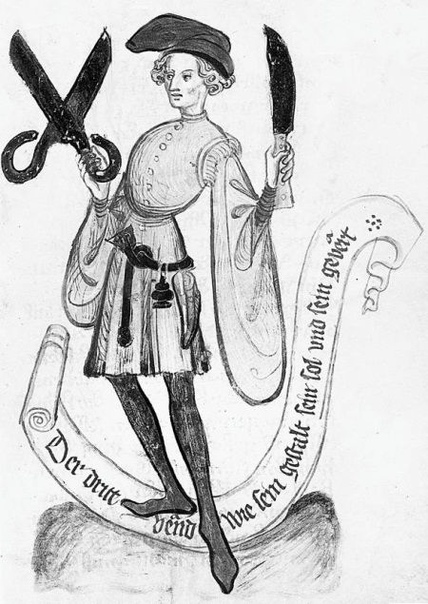 Der dritt vënd Wie sein gestalt sein sol vnd sein gebërt